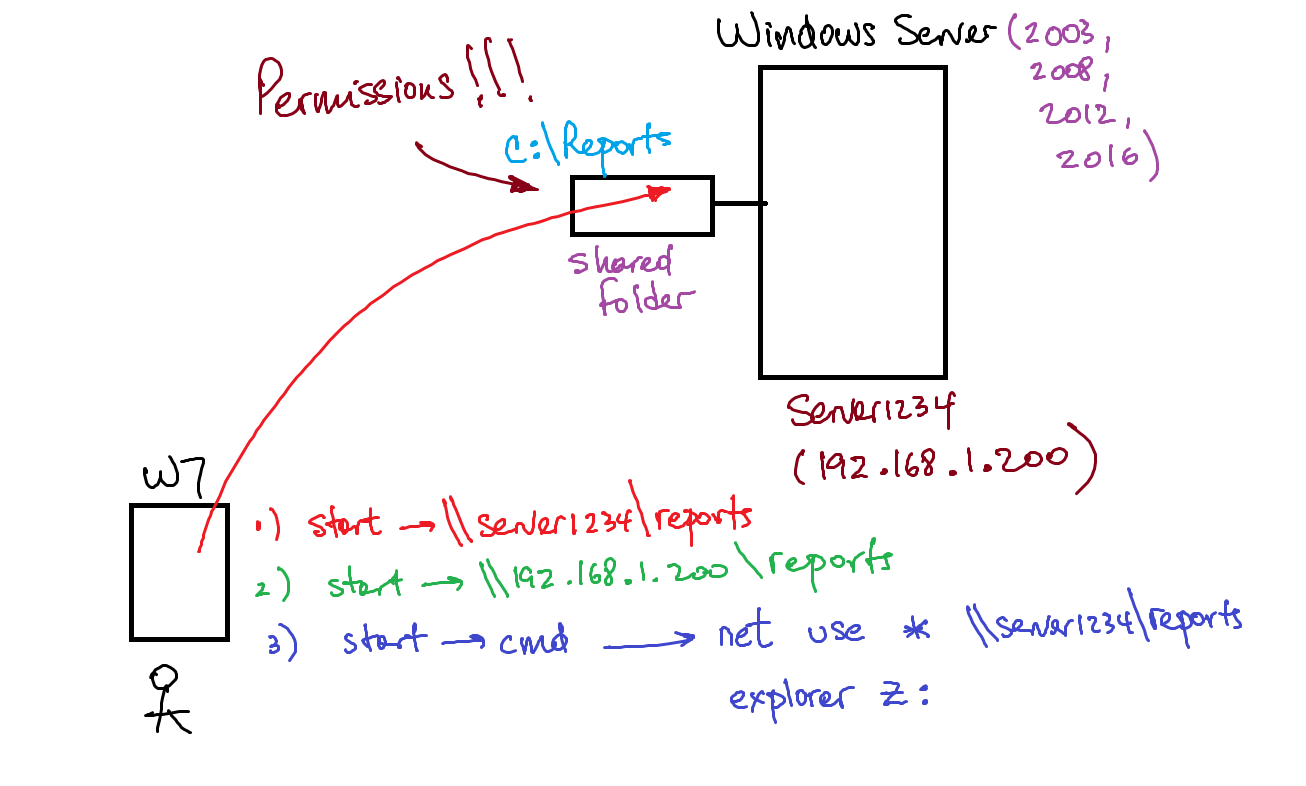 Windows Server (2003,
2008,
2012,
2016)
Permissions!!!
C:\Reports
shared
folder
Server1234
(192.168.1.200)
W7
1) start → \\server1234\reports
2) start → \\192.168.1.200\reports
3) start → cmd → net use * \\server1234\reports
explorer z: